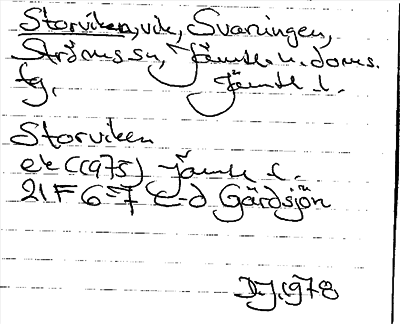 Storviken, vik, Svaningen,
Ströms sn, Jämtl. n. doms.
fg. Jämtl. l.
Storviken
ek (1975) Jämtl l.
21 F 6-7 c-d Gärdsjön
D.J. 1978